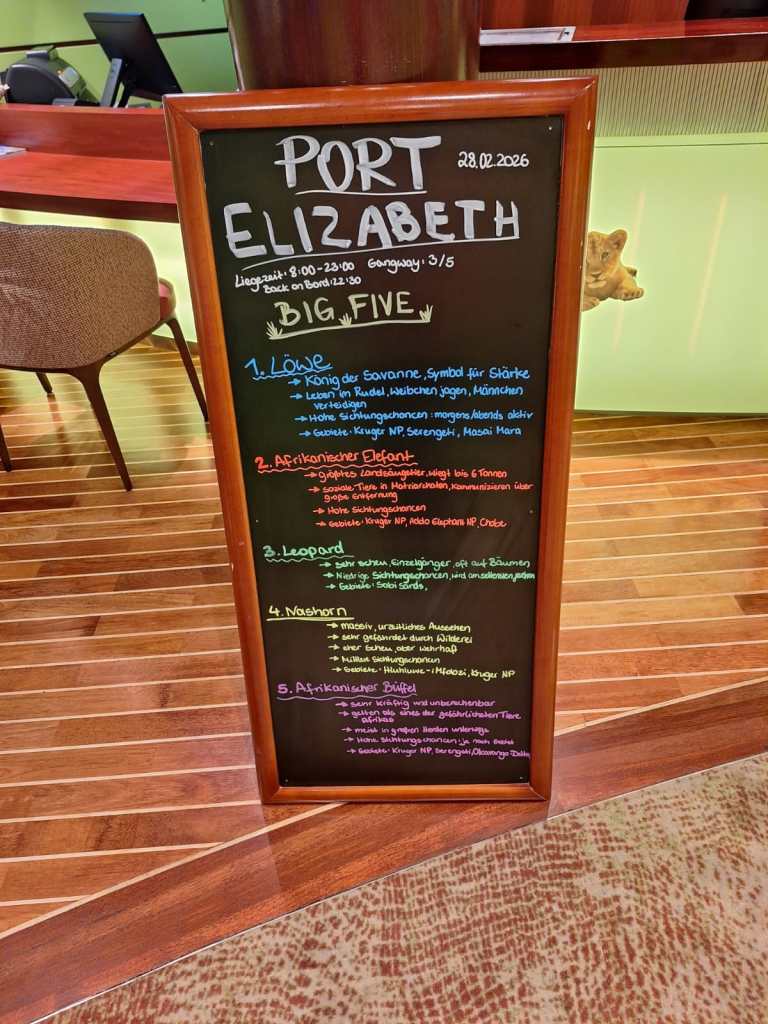 PORT
28.02.2026
ELIZABETH
Liegezeit: 8:00-23:00 Gangway: 3/5
Back on Bord: 22:30
BIG FIVE
1. Löwe
→ König der Savanne, Symbol für Stärke
→ Leben im Rudel, Weibchen jagen, Männchen
verteidigen
→ Hohe Sichtungschancen: morgens/abends aktiv
→ Gebiete: Kruger NP, Serengeti, Masai Mara
2. Afrikanischer Elefant
→ größtes Landsäugetier, wiegt bis 6 Tonnen
→ soziale Tiere in Matriarchaten, kommunizieren über
große Entfernung
→ Hohe Sichtungschancen
→ Gebiete: Kruger NP, Addo Elephant NP, Chobe
3. Leopard
→ sehr scheu, Einzelgänger, oft auf Bäumen
→ Niedrige Sichtungschancen, wird am seltensten
→ Gebiete: Sabi Sands,
4. Nashorn
→ massiv, urzeitliches Aussehen
→ sehr gefährdet durch Wilderei
→ eher scheu, aber wehrhaft
→ Mittlere Sichtungschancen
→ Gebiete: Hluhluwe-iMfolozi, Kruger NP
5. Afrikanischer Büffel
→ sehr kräftig und unberechenbar
→ gelten als eines der gefährlichsten Tiere
Afrikas
→ meist in großen Herden unterwegs
→ Hohe Sichtungschancen: je nach Gebiet
→ Gebiete: Kruger NP, Serengeti, Okavango-Delta